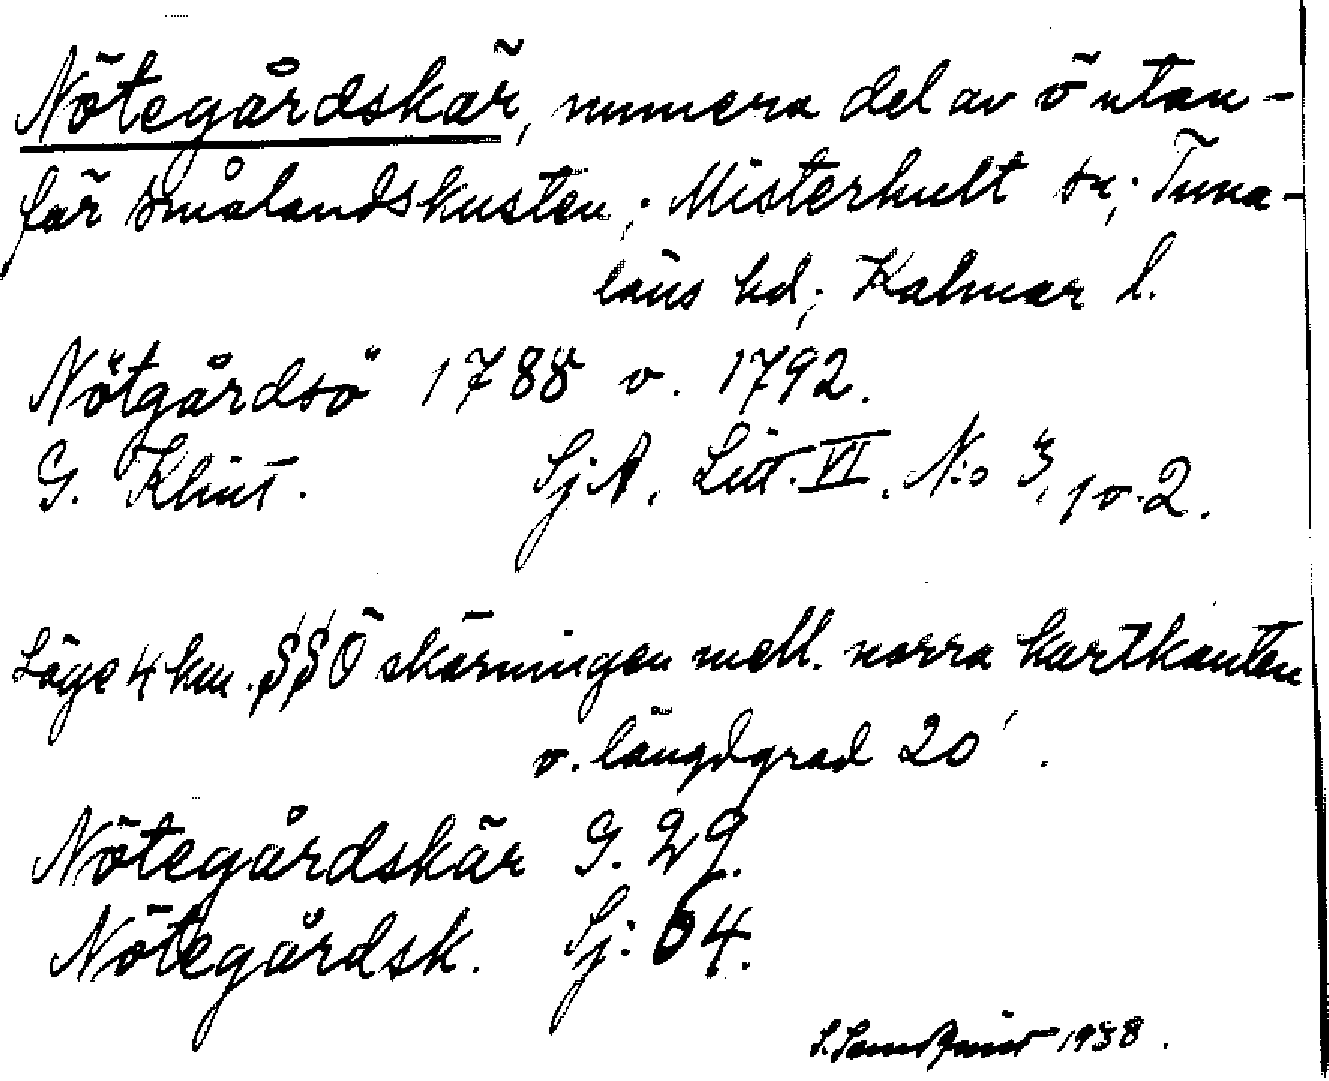 Nötegårdskär, numera del av ö utan-
för smålandskusten; Misterhult sn; Tuna-
läns hd; Kalmar l.
Nötgårdsö 1788 o. 1792.
G. Klint. Sj A, Litt. VI. N:o 3, 1 o. 2.
Läge 4 km. SSÖ skärningen mell. norra kartkanten
o. längdgrad 20'.
Nötegårdskär G. 29.
Nötegårdsk. Sj: 64.
1938.